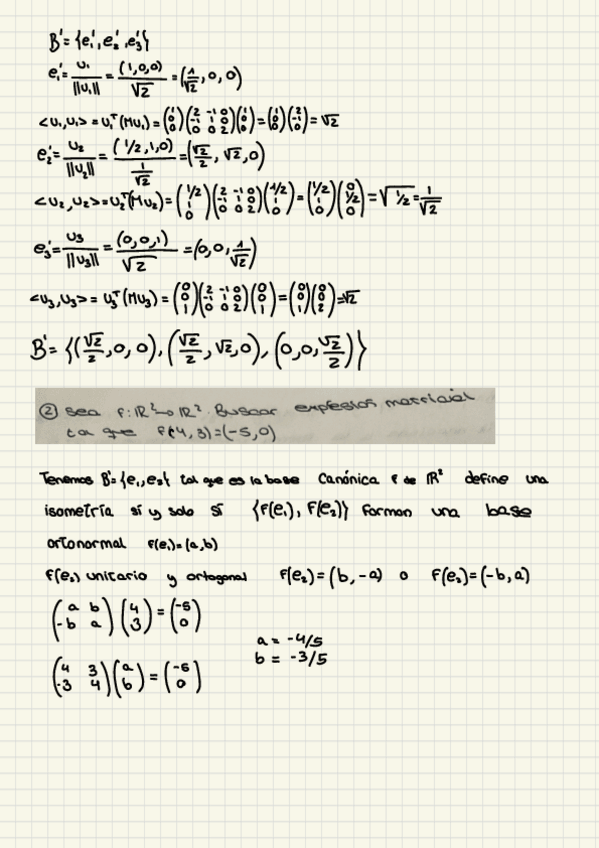 B' = {e₁', e₂', e₃'}
e₁' = u₁/||u₁|| = (1,0,0)/√2 = (1/√2, 0, 0)
<u₁,u₁> = u₁ᵀ(Mu₁) = (1 0 0)(2 -1 0 -1 1 0 0 0 2)(1 0 0) = (1 0 0)(2 -1 0) = √2
e₂' = u₂/||u₂|| = (1/2,1,0)/(1/√2) = (√2/2, √2, 0)
<u₂,u₂> = u₂ᵀ(Mu₂) = (1/2 1 0)(2 -1 0 -1 1 0 0 0 2)(1/2 1 0) = (1/2 1 0)(0 1/2 0) = √1/2 = 1/√2
e₃' = u₃/||u₃|| = (0,0,1)/√2 = (0,0,1/√2)
<u₃,u₃> = u₃ᵀ(Mu₃) = (0 0 1)(2 -1 0 -1 1 0 0 0 2)(0 0 1) = (0 0 1)(0 0 2) = √2
B' = {(√2/2, 0, 0), (√2/2, √2, 0), (0, 0, √2/2)}
② Sea f: ℝ² → ℝ². Buscar matricial
tal que f(4,3)=(-5,0)
Tenemos B'={e₁,e₂} tal que es la base Canónica f de ℝ² define una
isometría sí y solo sí {f(e₁), f(e₂)} forman una base
ortonormal f(e₁)=(a,b)
f(e₂) unitario y ortogonal f(e₂)=(b,-a) o f(e₂)=(-b,a)
(a b -b a)(4 3) = (-5 0)
a = -4/5
b = -3/5
(4 3 -3 4)(a b) = (-5 0)